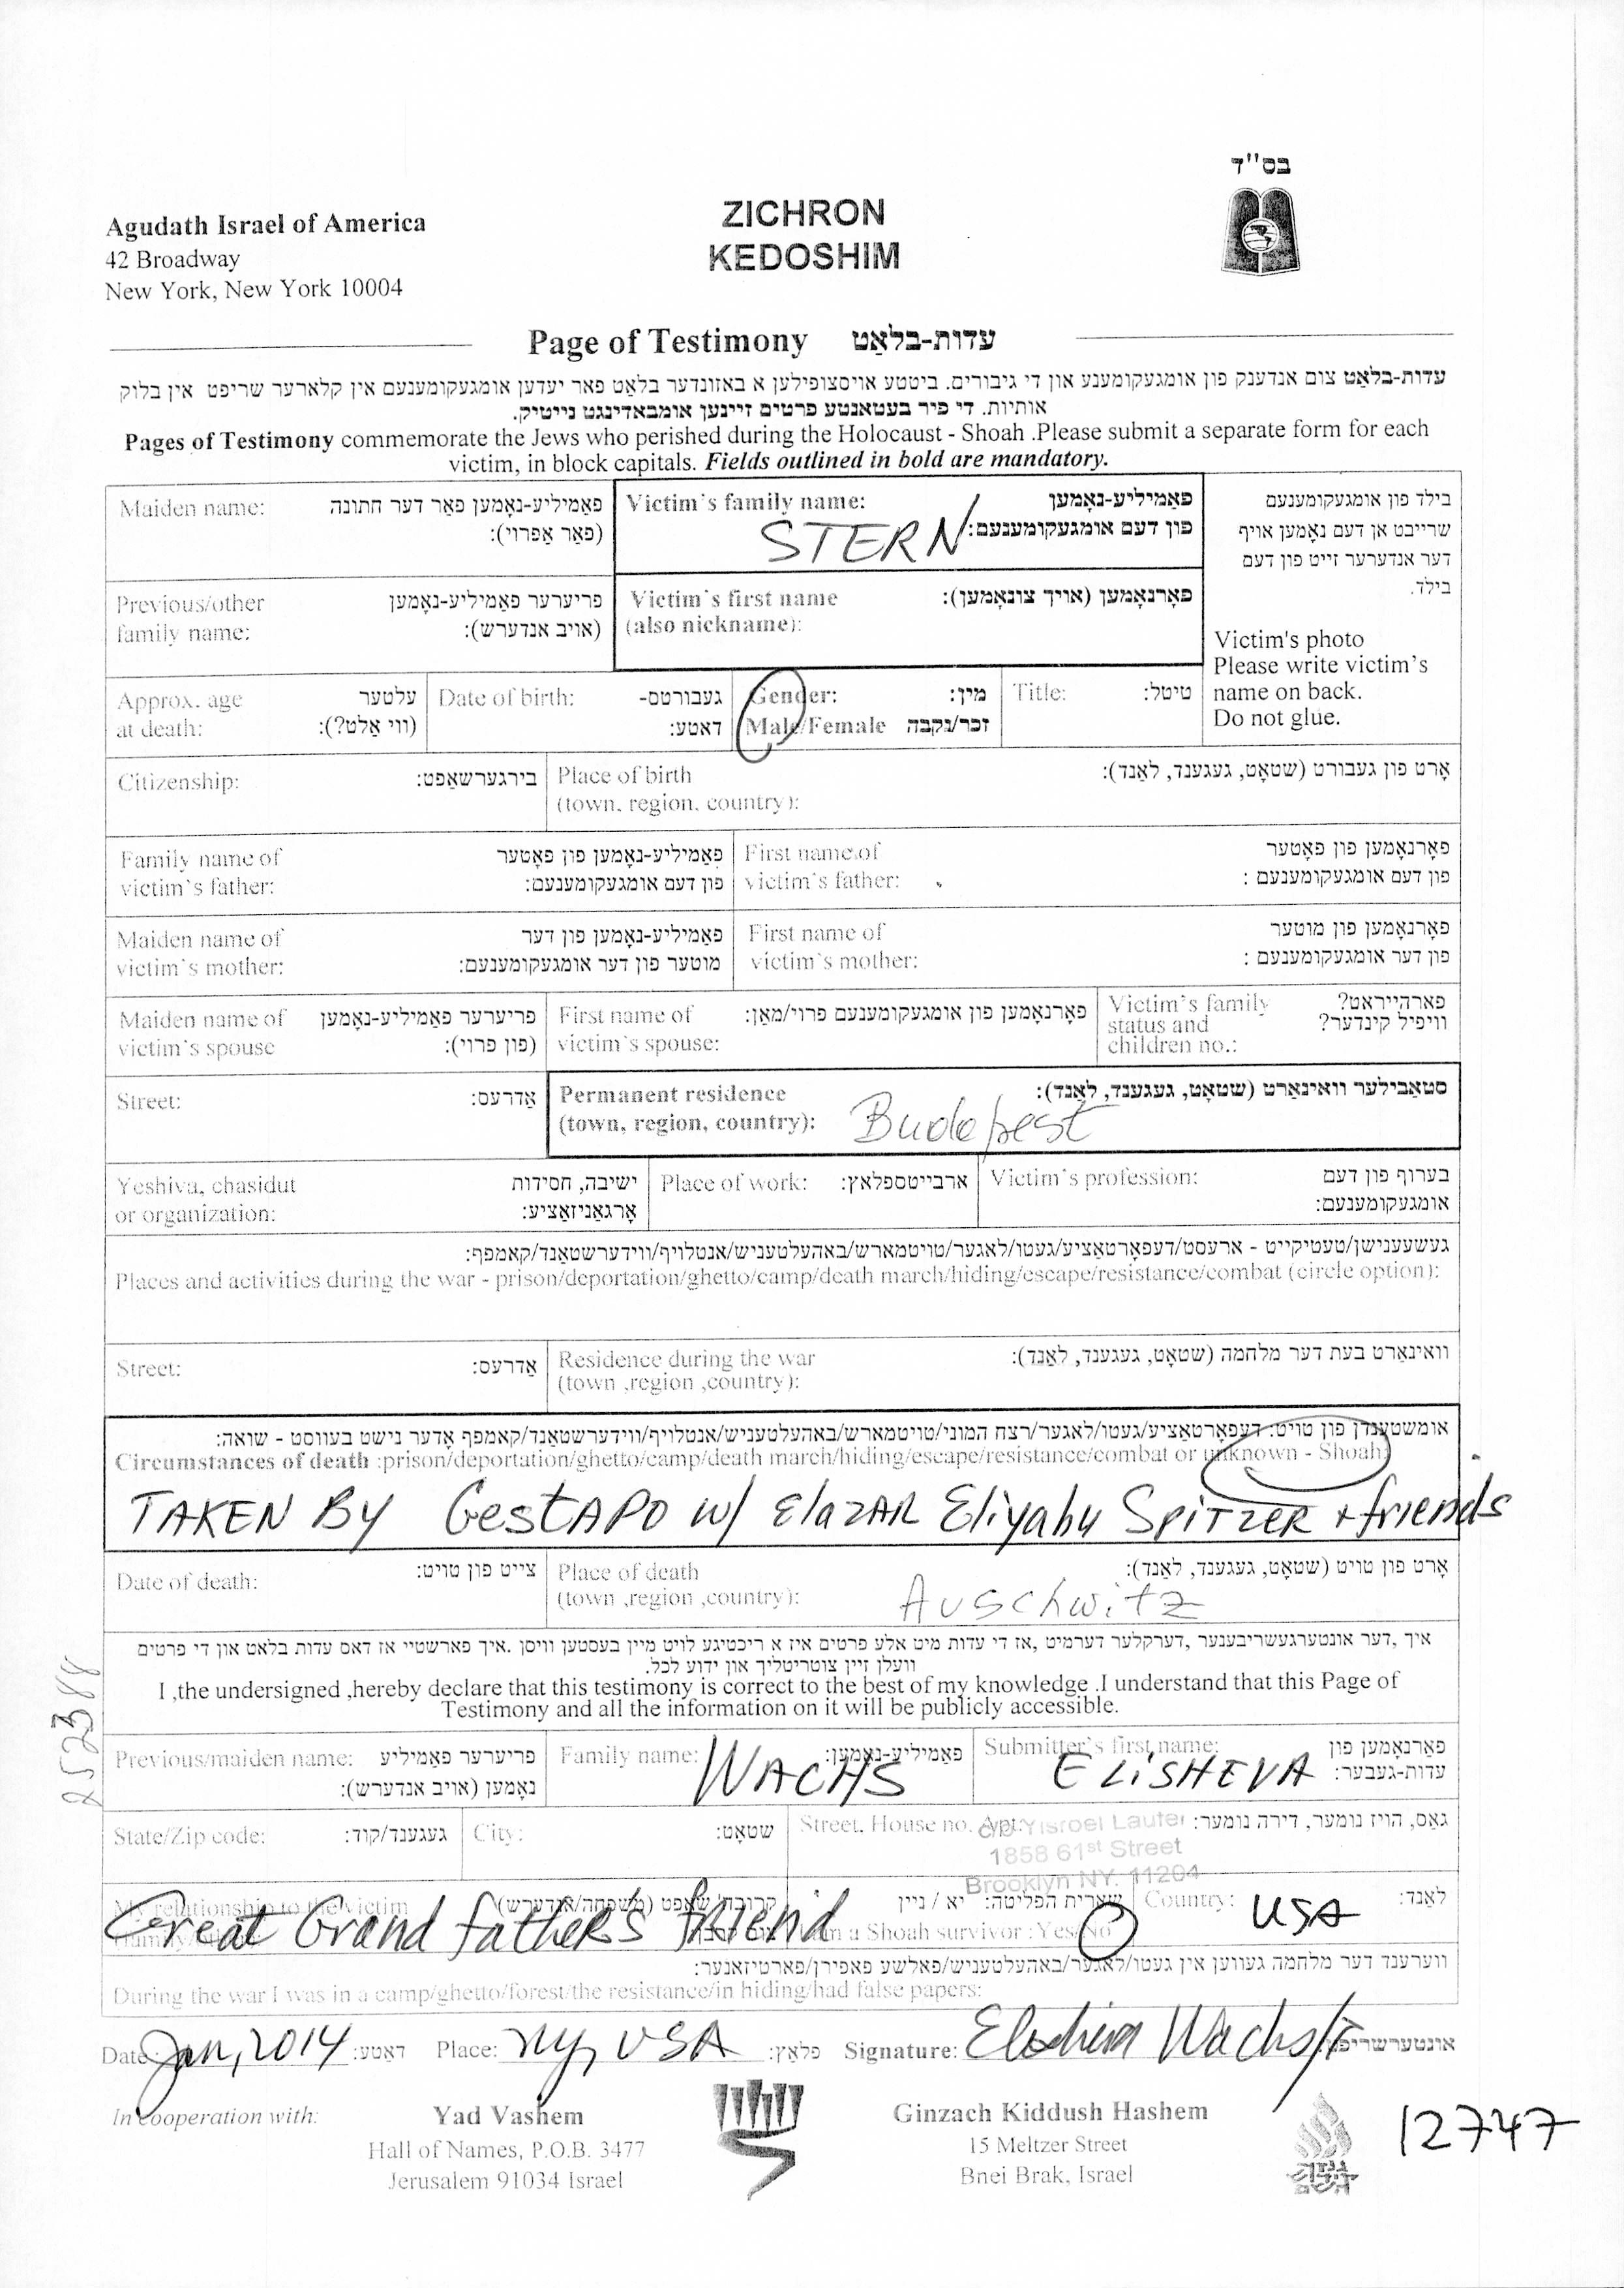 בס"ד
Agudath Israel of America
42 Broadway
New York, New York 10004
ZICHRON
KEDOSHIM
Page of Testimony עדות-בלאַט
עדות-בלאַט צום אנדענק פון אומגעקומענע און די גיבורים. ביטטע אויסצופילען א באזונדער בלאַט פאר יעדען אומגעקומענעם אין קלארער שריפט אין בלוק
אותיות. די פיר בעטאנטע פרטים זיינען אומבאדינגט נייטיק.
Pages of Testimony commemorate the Jews who perished during the Holocaust - Shoah .Please submit a separate form for each
victim, in block capitals. Fields outlined in bold are mandatory.
Maiden name: פאַמיליע-נאָמען פאַר דער חתונה
(פאַר אַפרוי):
Victim's family name: פאַמיליע-נאָמען
פון דעם אומגעקומענעם:
STERN
בילד פון אומגעקומענעם
שרייבט אן דעם נאָמען אויף
דער אנדערער זייט פון דעם
בילד.
Victim's photo
Please write victim's
name on back.
Do not glue.
Previous/other פריערער פאַמיליע-נאָמען
family name: (אויב אנדערש):
Victim's first name פאָרנאָמען (אויך צונאָמען):
(also nickname):
Approx. age עלטער
at death: (ווי אַלט?):
Date of birth: געבורטס-
דאטע:
Gender: מין:
Male/Female זכר/נקבה
Title: טיטל:
Citizenship: בירגערשאַפט:
Place of birth אָרט פון געבורט (שטאָט, געגענד, לאַנד):
(town, region, country):
Family name of פאַמיליע-נאָמען פון פאָטער
victim's father: פון דעם אומגעקומענעם:
First name of פאָרנאָמען פון פאָטער
victim's father: פון דעם אומגעקומענעם :
Maiden name of פאַמיליע-נאָמען פון דער
victim's mother: מוטער פון דער אומגעקומענעם:
First name of פאָרנאָמען פון מוטער
victim's mother: פון דער אומגעקומענעם :
Maiden name of פריערער פאַמיליע-נאָמען
victim's spouse (פון פרוי):
First name of פאָרנאָמען פון אומגעקומענעם פרוי/מאַן:
victim's spouse:
Victim's family פארהייראט?
status and וויפיל קינדער?
children no.:
Street: אַדרעס:
Permanent residence סטאַבילער וואוינאָרט (שטאָט, געגענד, לאַנד):
(town, region, country): Budapest
Yeshiva, chasidut ישיבה, חסידות
or organization: אָרגאַניזאַציע:
Place of work: ארבייטספלאץ:
Victim's profession: בערוף פון דעם
אומגעקומענעם:
געשעענישן/טעטיקייט - ארעסט/דעפאָרטאַציע/געטו/לאגער/טויטמארש/באהעלטעניש/אנטלויף/ווידערשטאַנד/קאמפף:
Places and activities during the war - prison/deportation/ghetto/camp/death march/hiding/escape/resistance/combat (circle option):
Street: אַדרעס:
Residence during the war וואוינאָרט בעת דער מלחמה (שטאָט, געגענד, לאַנד):
(town ,region ,country):
אומשטענדן פון טויט: דעפאָרטאַציע/געטו/לאגער/רצח המוני/טויטמארש/באהעלטעניש/אנטלויף/ווידערשטאַנד/קאמפף אָדער נישט בעווסט - שואה:
Circumstances of death :prison/deportation/ghetto/camp/death march/hiding/escape/resistance/combat or unknown - Shoah:
TAKEN By GestAPO w/ ElazAR Eliyahu SPITZER + friends
Date of death: צייט פון טויט:
Place of death אָרט פון טויט (שטאָט, געגענד, לאַנד):
(town ,region ,country): Auschwitz
איך ,דער אונטערגעשריבענער ,דערקלער דערמיט ,אז די עדות מיט אלע פרטים איז א ריכטיגע לויט מיין בעסטען וויסן .איך פארשטיי אז דאס עדות בלאט און די פרטים
וועלן זיין צוטריטליך און ידוע לכל.
I ,the undersigned ,hereby declare that this testimony is correct to the best of my knowledge .I understand that this Page of
Testimony and all the information on it will be publicly accessible.
252388
Previous/maiden name: פריערער פאַמיליע
נאָמען (אויב אנדערש):
Family name: פאַמיליע-נאָמען:
WACHS
Submitter's first name: פאַרנאָמען פון
עדות-געבער:
ELISHEVA
State/Zip code: געגענד/קוד:
City: שטאָט:
Street, House no. Apt: גאַס, הויז נומער, דירה נומער:
c/o Yisroel Laufer
1858 61st Street
Brooklyn NY. 11204
My relationship to the victim קרובה'שאַפט (משפחה/אנדערש)
Great Grand father's friend
שארית הפליטה: יא / ניין
I am a Shoah survivor : Yes/No
Country: לאַנד:
USA
ווערענד דער מלחמה געווען אין געטו/לאגער/באהעלטעניש/פאלשע פאפירן/פארטיזאנער:
During the war I was in a camp/ghetto/forest/the resistance/in hiding/had false papers:
Date: Jan, 2014 דאטע: Place: NY, USA פלאץ: Signature: Elisheva Wachs אונטערשריפט
In cooperation with:
Yad Vashem
Hall of Names, P.O.B. 3477
Jerusalem 91034 Israel
Ginzach Kiddush Hashem
15 Meltzer Street
Bnei Brak, Israel
12747